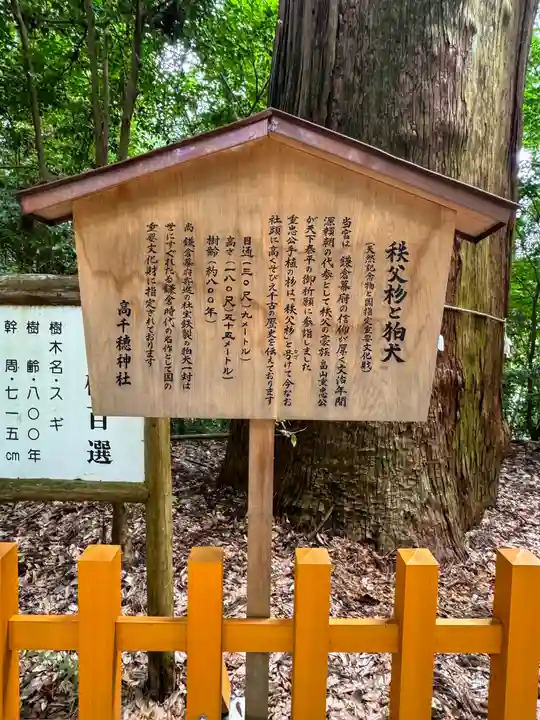 秩父杉と狛犬
(天然紀念物と国指定重要文化財)
当宮は 鎌倉幕府の信仰が厚く文治年間
源頼朝の代参として秩父の豪族 畠山重忠公
が天下泰平の御祈願に参詣しました
重忠公手植の杉は、「秩父杉」と号けて今なお
社頭に高くそびえ千古の歴史を伝えております
目通(三〇尺)九メートル)
高さ(一八〇尺)五十五メートル)
樹齢(約八〇〇年)
尚 鎌倉幕府寄進の社宝鉄製の狛犬一対は
世にすぐれたる鎌倉時代の名作として国の
重要文化財に指定されております
高千穂神社
百選
樹木名・スギ
樹 齢・八〇〇年
幹 周・七一五cm